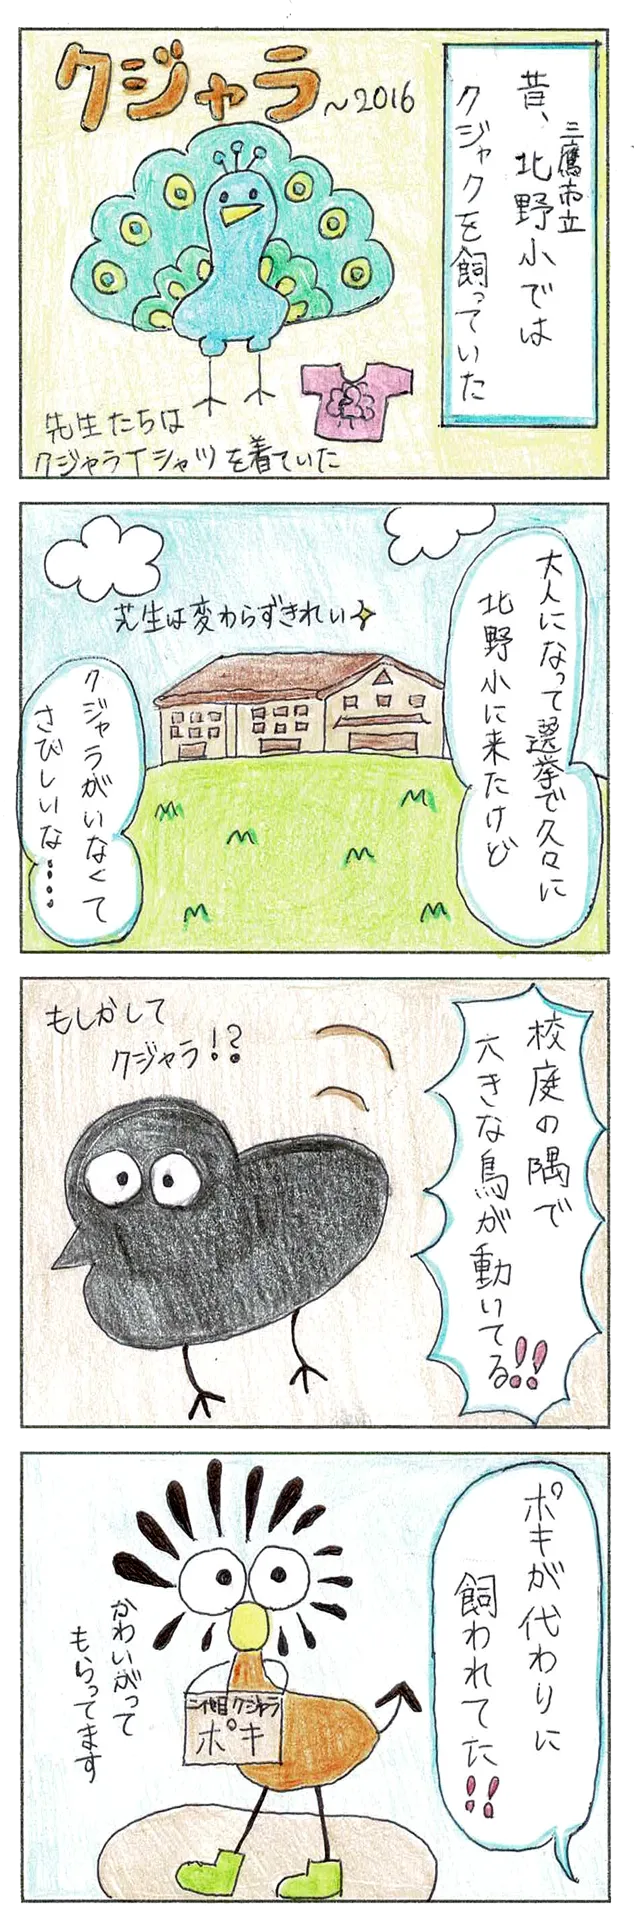 三鷹市立
昔、北野小では
クジャクを飼っていた
クジャラ
～2016
先生たちは
クジャラTシャツを着ていた
大人になって選挙で久々に
北野小に来たけど
芝生は変わらずきれい
クジャラがいなくて
さびしいな……
校庭の隅で
大きな鳥が動いてる!!
もしかして
クジャラ!?
ポキが代わりに
飼われてた!!
二代目クジャラ
ポキ
かわいがって
もらってます